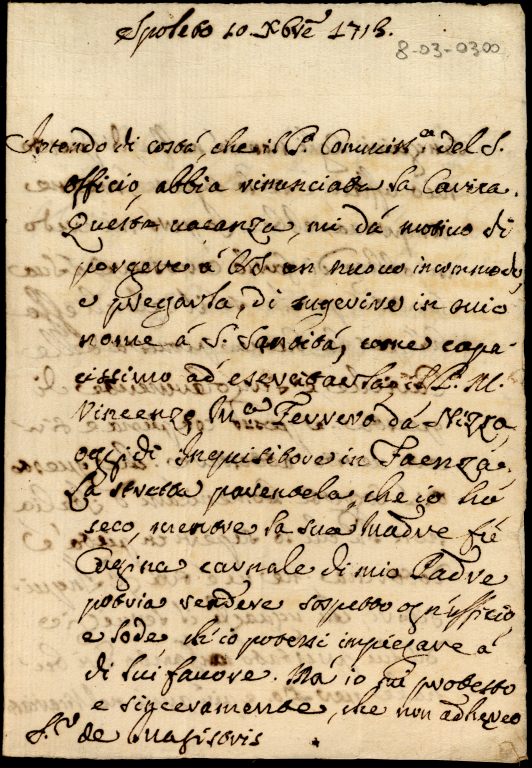 Spoleto 10 Xbre 1713.
8-03-0300
Intendo di costà, che il P. Commiss.o del S.
Officio, abbia rinunciata la Carica.
Questa vacanza, mi dà motivo di
porgere à VS un nuovo incommodo,
e pregarla, di sugerire in mio
nome à S. Santità, come capa-
cissimo ad esercitarla, il P. M.
Vincenzo M.a Ferrero dà Nizza,
oggidi Inquisitore in Faenza.
La stretta parentela, che io hò
seco, mentre la sua Madre fù
Cugina carnale di mio Padre
potria rendere sospetto ogn'ufficio,
e lode ch'io potessi impiegare à
di lui favore. Mà io giu protesto
e sinceramente, che non adhereo
de Magistris